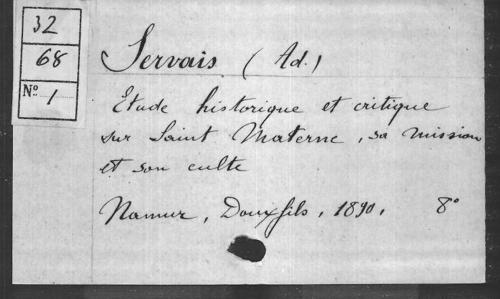 32
68
No 1
Servais (Ad.)
Etude historique et critique
sur Saint Materne, sa mission
et son culte
Namur, Douxfils, 1890, 8°